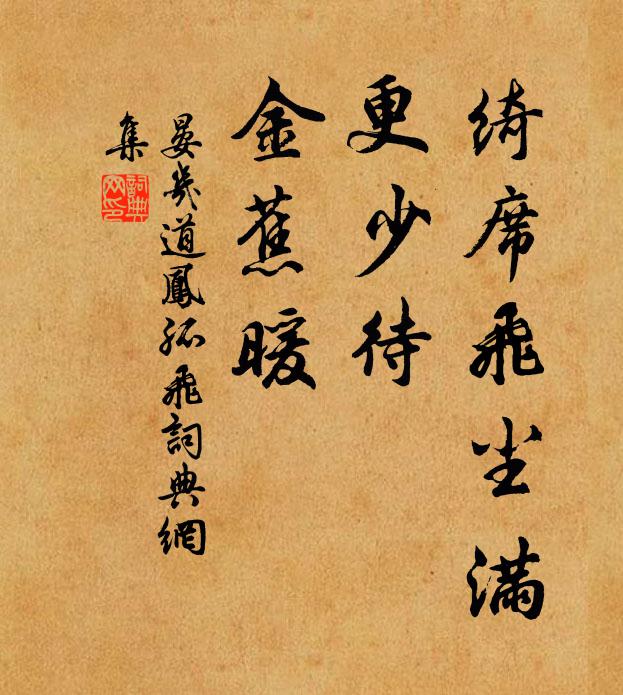 綺席飛尘滿
更少待
金蕉暖
晏幾道鳳孤飛詞典網
集
詞典网印